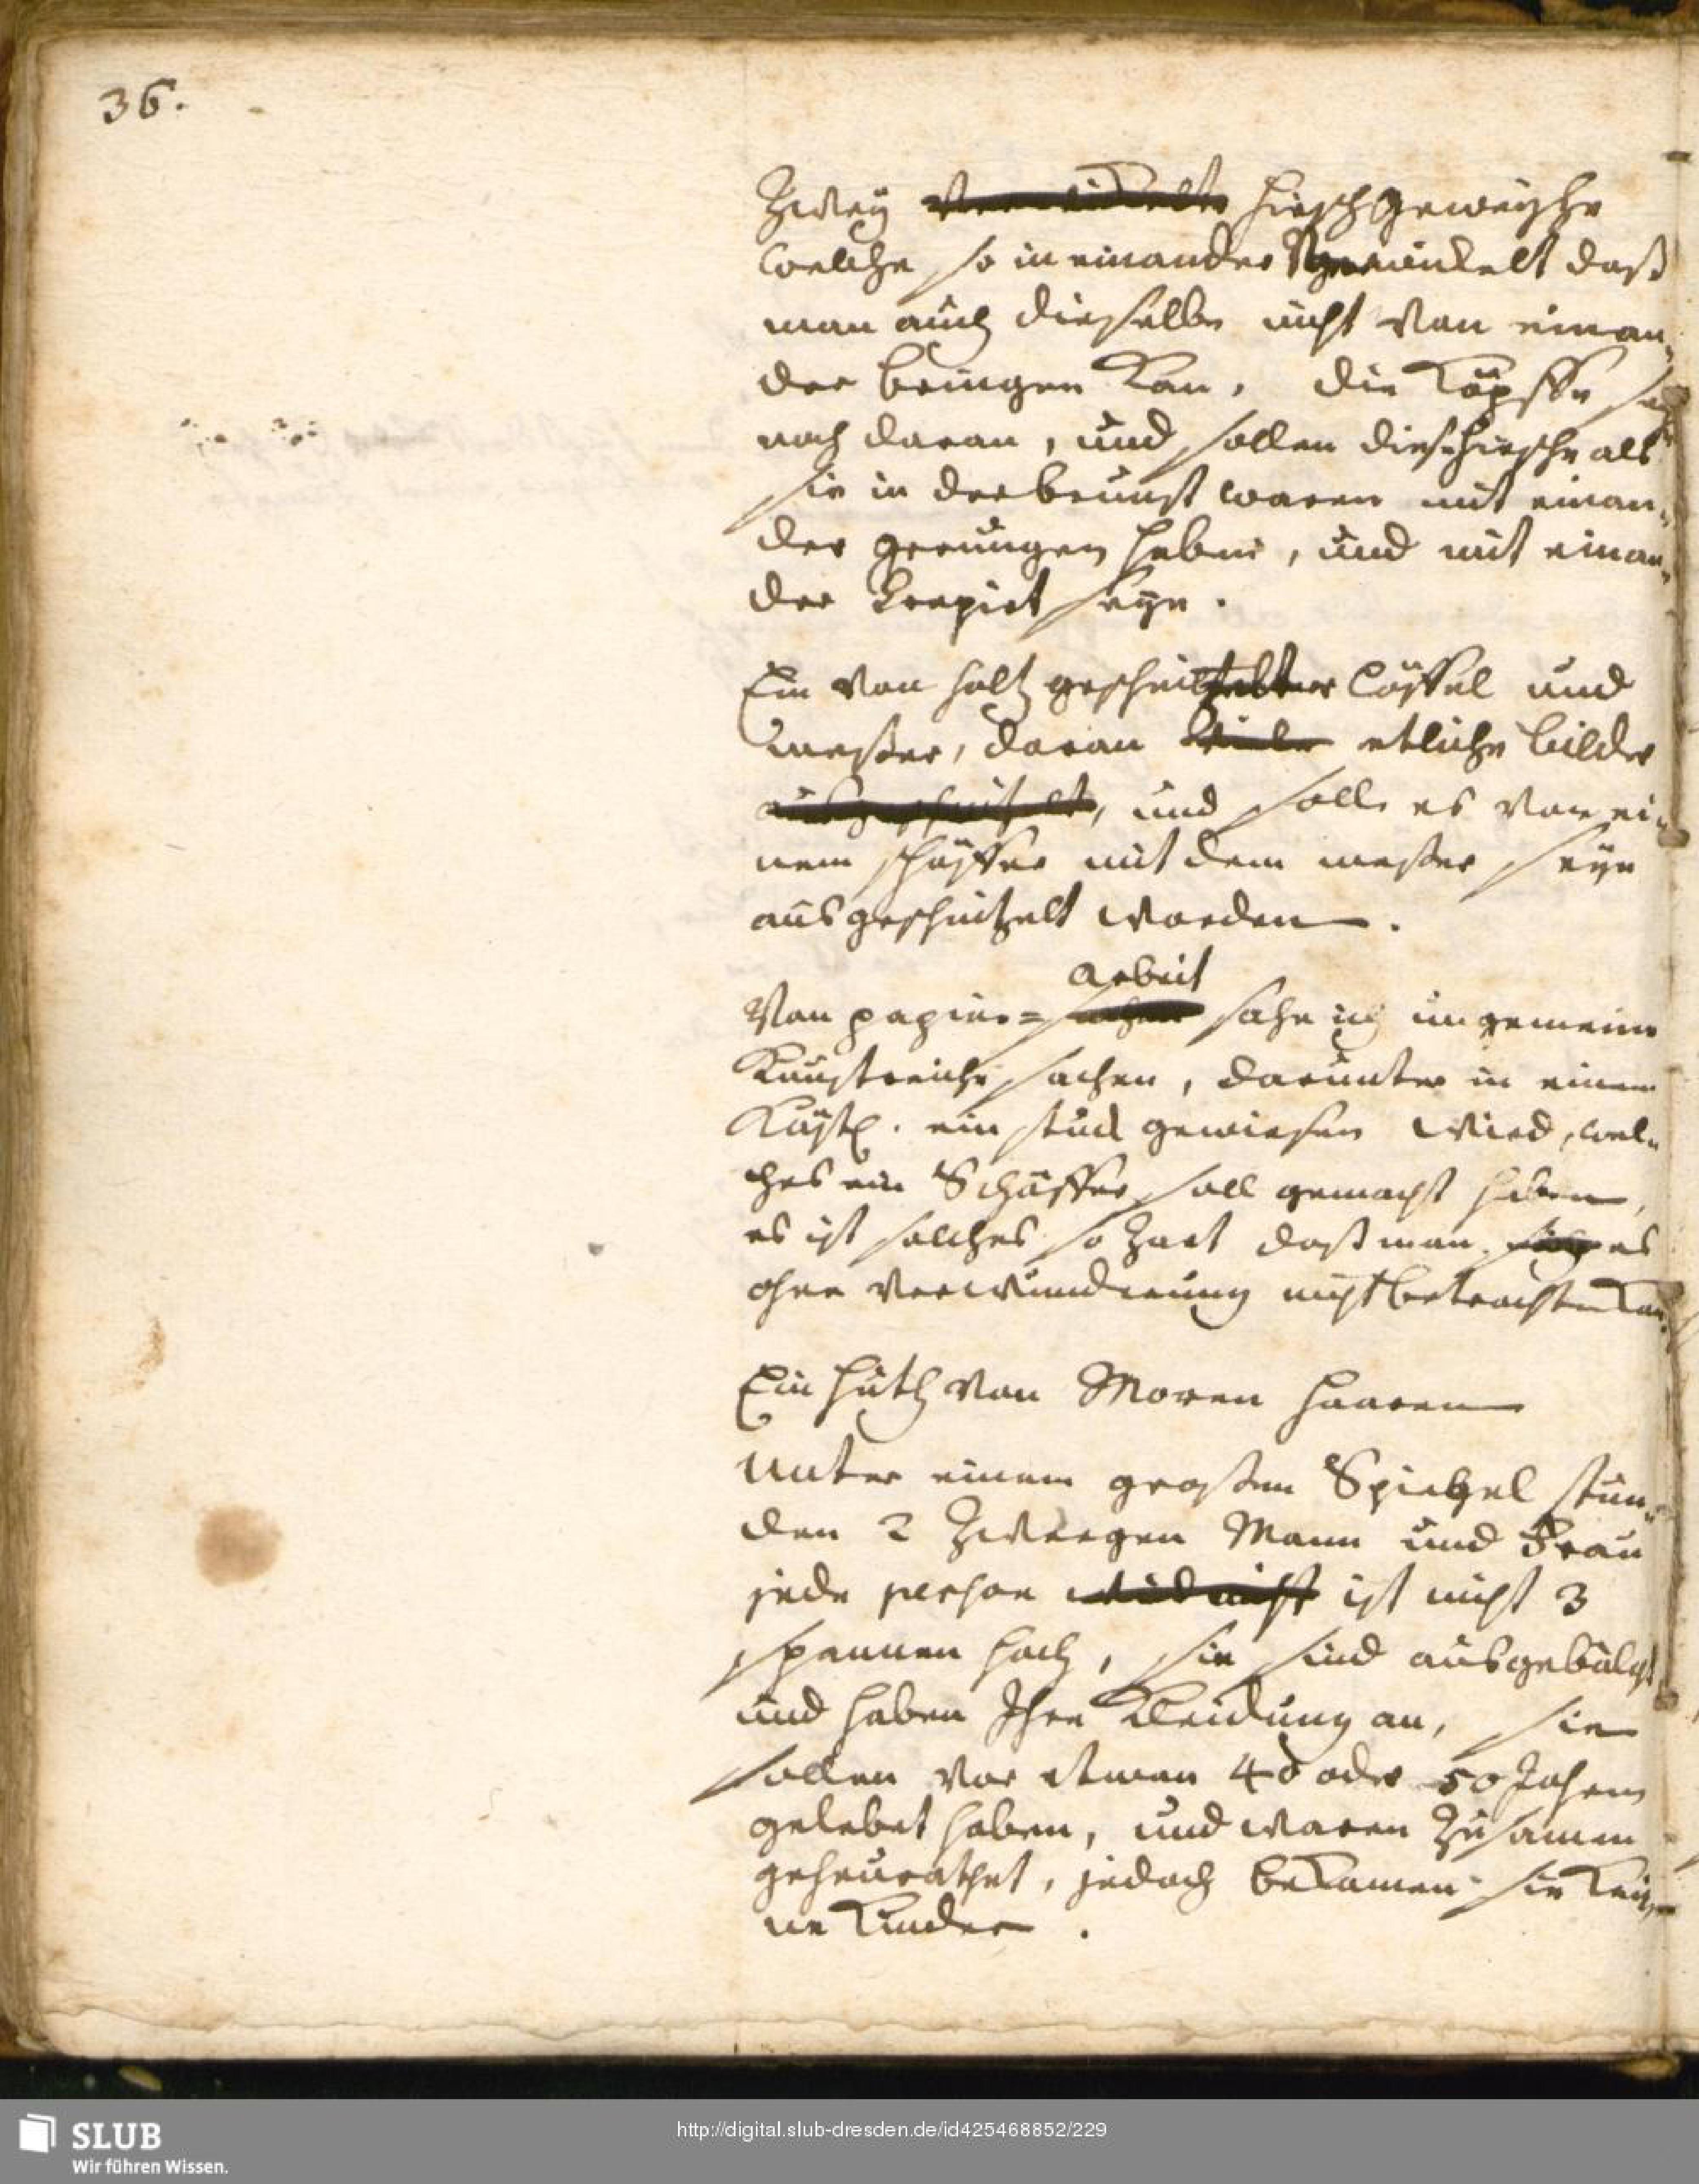 36.
Zweÿ verwickelte HirschGeweyhe
welche so in einander verwickelt daß
man auch dieselbe nicht von einan„
der bringen kan, die Köpffe
noch daran, und sollen diese Hirsche als
sie in der brunst waren mit einan„
der gerungen haben, und mit einan„
der krepirt seyn.
Ein von Holtz geschnitzelter Löffel und
messer, daran viele etliche bilder
ausgeschnitzelt, und solle es von ei„
nem schäffer mit dem messer seyn
ausgeschnitzelt worden.
arbeit
Von papier= sahe ich ungemeine
Kunstreiche sachen, darunter in einem
Kästl. ein stuck gewiesen wird, wel„
ches ein Schäffer soll gemacht haben,
es ist solches so zart daß man es
ohne verwunderung nicht betrachten kan.
Ein Huth von Moren Haaren
Unter einem großen Spiegel stun„
den 2 Zwergen Mann und Frau
jede person wird nicht ist nicht 3
spannen hoch, sie sind ausgebälgt
und haben Ihre Kleidung an, sie
sollen vor etwan 40 oder 50 Jahren
gelebet haben, und waren zusamen
geheurathet, jedoch bekamen sie kei„
ne Kinder.
SLUB
Wir führen Wissen.
http://digital.slub-dresden.de/id425468852/229